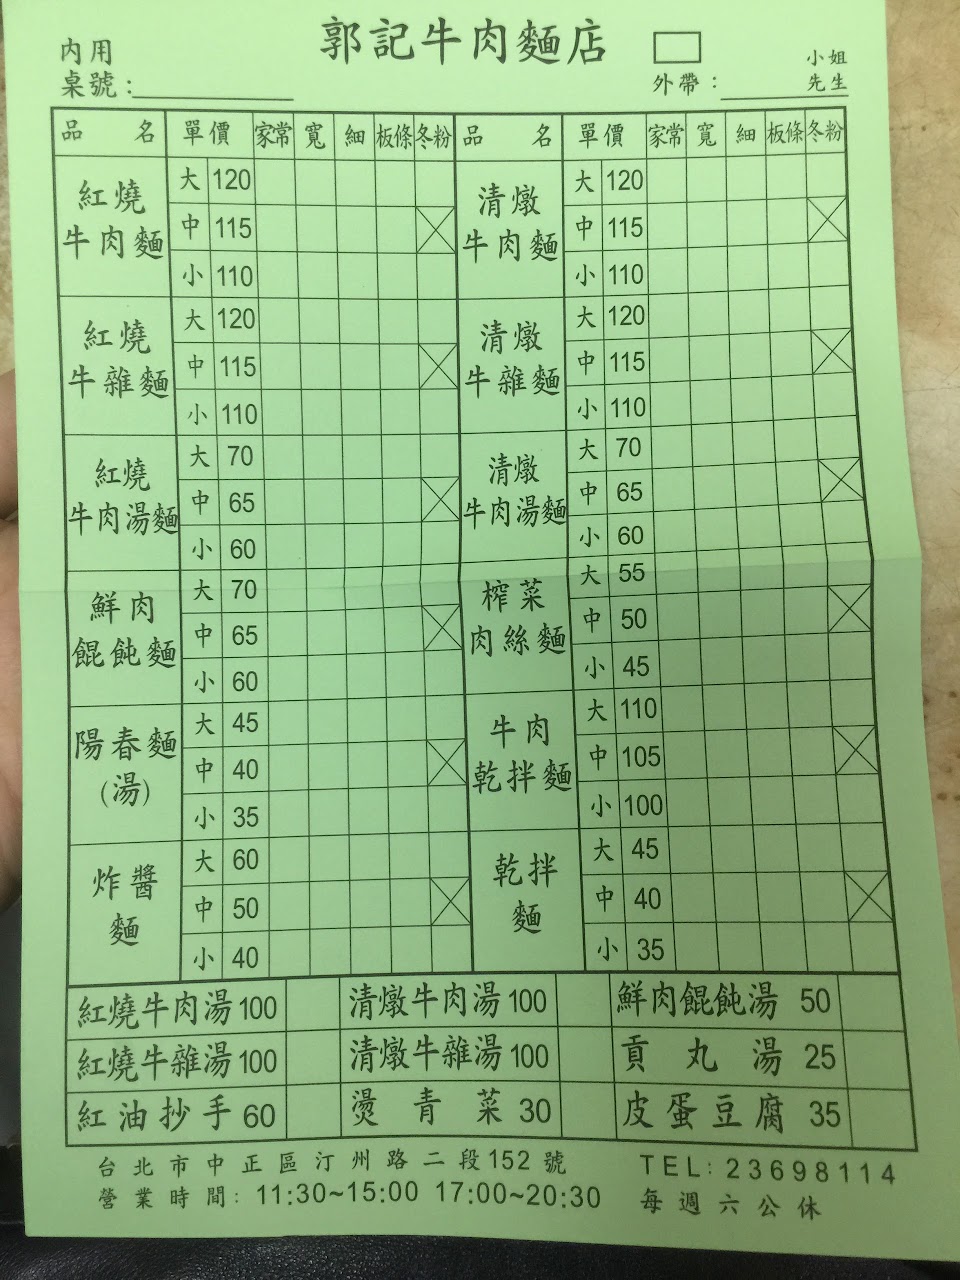 郭記牛肉麵店
內用
桌號：
外帶：
小姐
先生
品名 單價 家常 寬 細 板條 冬粉 品名 單價 家常 寬 細 板條 冬粉
紅燒牛肉麵 大 120 中 115 小 110
清燉牛肉麵 大 120 中 115 小 110
紅燒牛雜麵 大 120 中 115 小 110
清燉牛雜麵 大 120 中 115 小 110
紅燒牛肉湯麵 大 70 中 65 小 60
清燉牛肉湯麵 大 70 中 65 小 60
鮮肉餛飩麵 大 70 中 65 小 60
榨菜肉絲麵 大 55 中 50 小 45
陽春麵(湯) 大 45 中 40 小 35
牛肉乾拌麵 大 110 中 105 小 100
炸醬麵 大 60 中 50 小 40
乾拌麵 大 45 中 40 小 35
紅燒牛肉湯 100 清燉牛肉湯 100 鮮肉餛飩湯 50
紅燒牛雜湯 100 清燉牛雜湯 100 貢丸湯 25
紅油抄手 60 燙青菜 30 皮蛋豆腐 35
台北市中正區汀州路二段152號 TEL:23698114
營業時間：11:30~15:00 17:00~20:30 每週六公休